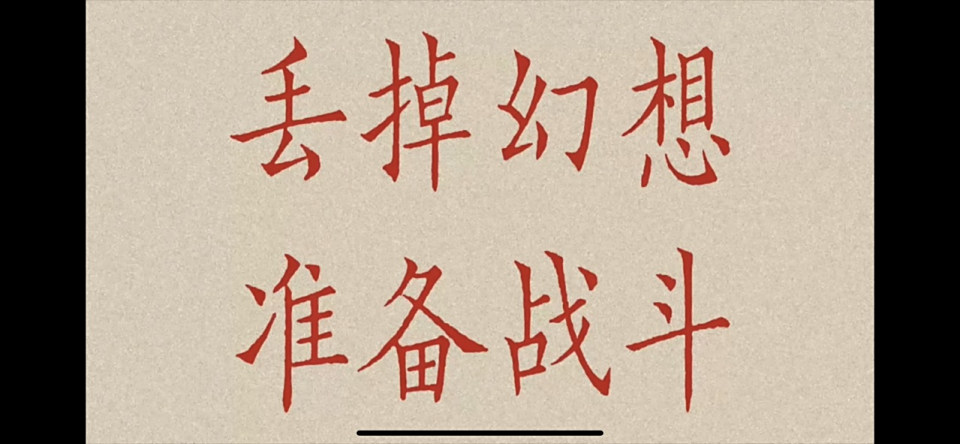 丢掉幻想
准备战斗